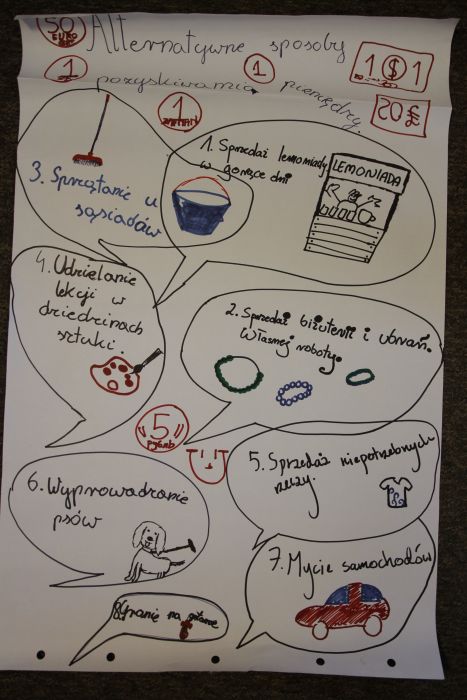 50
EURO
Alternatywne sposoby
1 $ 1
1
1
pozyskiwania pieniędzy.
1
20 £
1. Sprzedaż lemoniady
w gorące dni
LEMONIADA
3. Sprzątanie u
sąsiadów
4. Udzielanie
lekcji w
dziedzinach
sztuki.
2. Sprzedaż biżuterii i ubrań.
Własnej roboty.
5
rubli
5. Sprzedaż niepotrzebnych
rzeczy.
6. Wyprowadzanie
psów
7. Mycie samochodów
8. Granie na gitarze